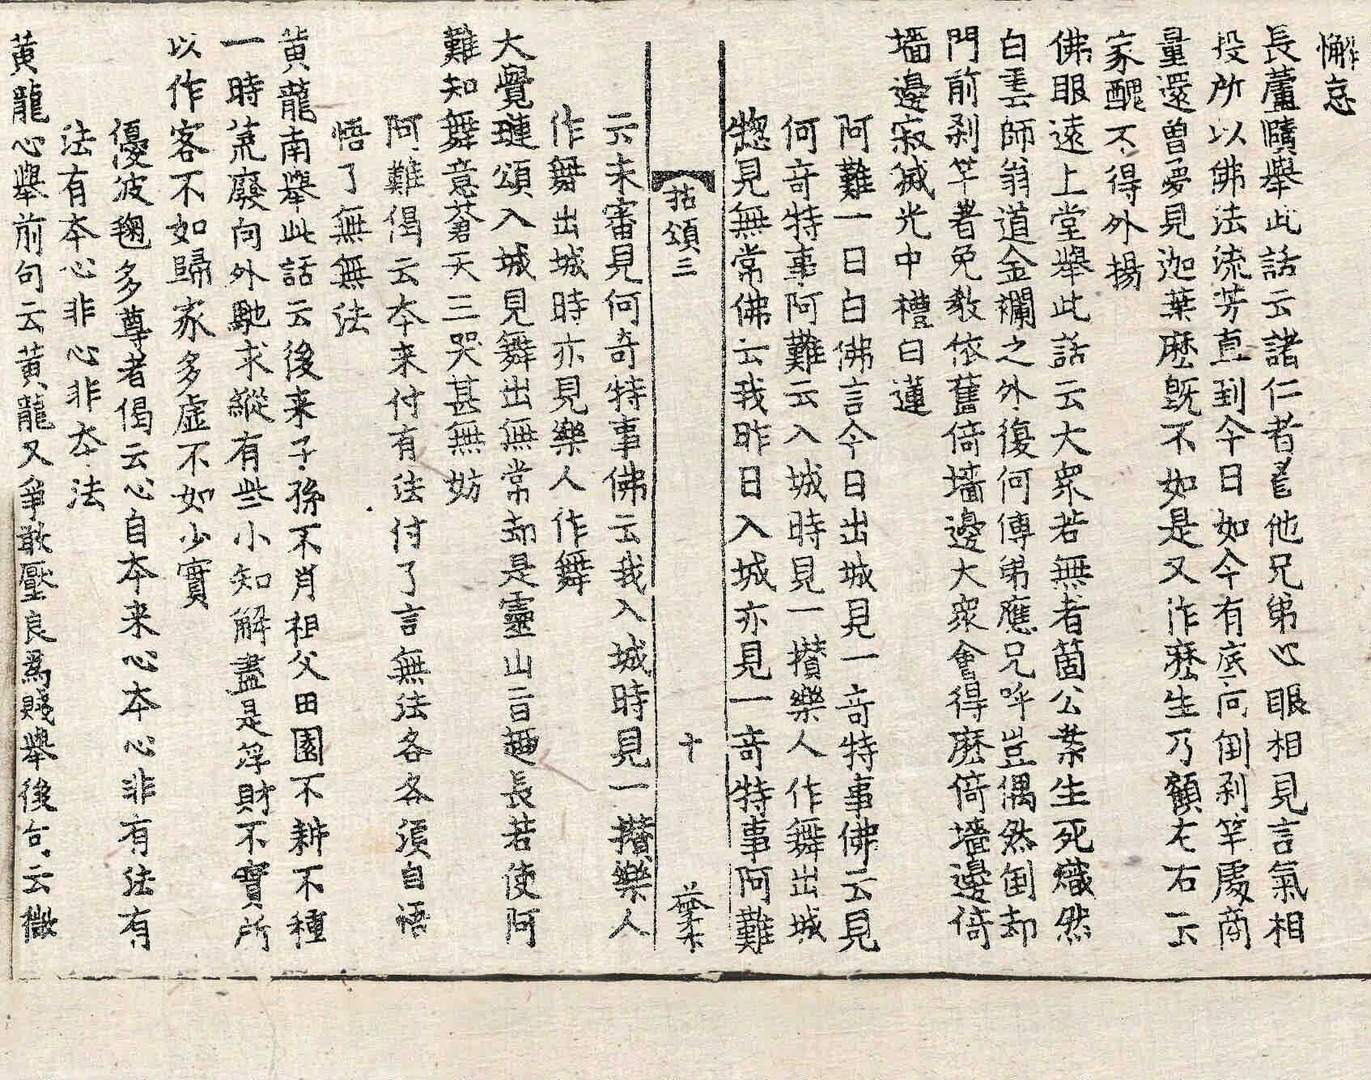 懈怠
長蘆賾舉此話云諸仁者看他兄弟心眼相見言氣相
投所以佛法流芳直到今日如今有底向倒刹竿處商
量還曾夢見迦葉麽旣不如是又作麽生乃顧左右云
家醜不得外揚
佛眼遠上堂舉此話云大衆若無者箇公案生死熾然
白雲師翁道金襴之外復何傳弟應兄呼豈偶然倒却
門前刹竿著免教依舊倚墻邊大衆會得麽倚墻邊倚
墻邊寂滅光中禮白蓮
阿難一日白佛言今日出城見一奇特事佛云見
何奇特事阿難云入城時見一攅樂人作舞出城
惣見無常佛云我昨日入城亦見一奇特事阿難
拈頌三 十
云未審見何奇特事佛云我入城時見一攅樂人
作舞出城時亦見樂人作舞
大覺璉頌入城見舞出無常却是靈山旨趣長若使阿
難知舞意蒼天三哭甚無妨
阿難偈云本来付有法付了言無法各各須自悟
悟了無無法
黄龍南舉此話云後来子孫不肖祖父田園不耕不種
一時荒廢向外馳求縱有些小知解盡是浮財不實所
以作客不如歸家多虛不如少實
優波鞠多尊者偈云心自本来心本心非有法有
法有本心非心非本法
黄龍心舉前句云黄龍又爭敢壓良爲賤舉後句云微